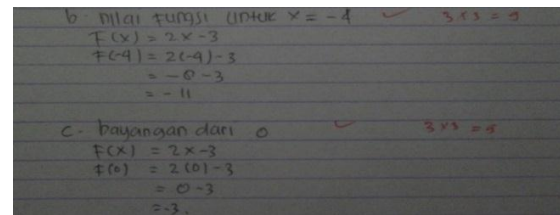 b. nilai fungsi untuk x = -4 3 x 3 = 9
F(x) = 2x - 3
F(-4) = 2(-4) - 3
= -8 - 3
= -11
c. bayangan dari 0 3 x 3 = 9
F(x) = 2x - 3
F(0) = 2(0) - 3
= 0 - 3
= -3.